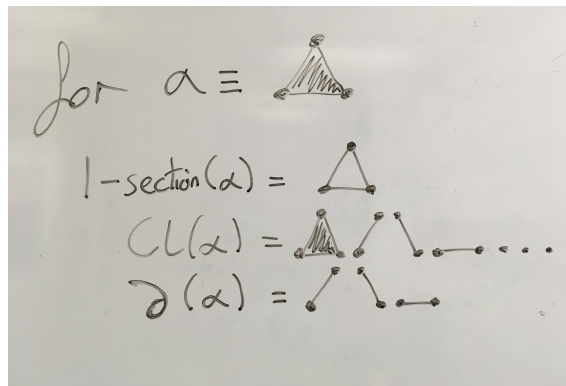 for α ≡
1-section(α) =
CL(α) =
∂(α) =